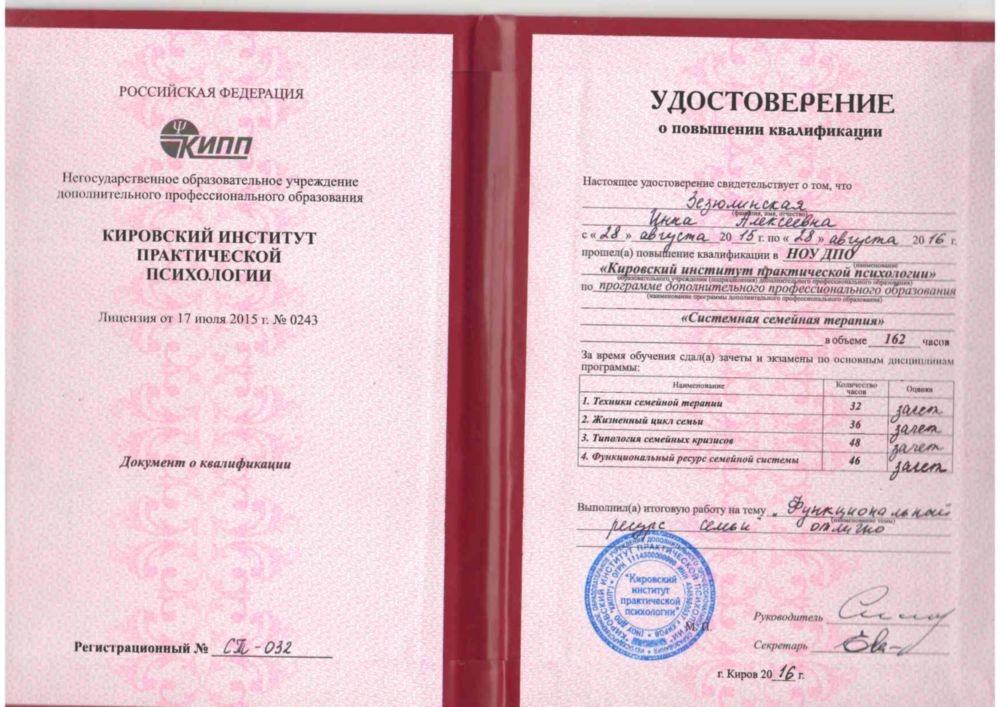 РОССИЙСКАЯ ФЕДЕРАЦИЯ
КИПП
Негосударственное образовательное учреждение
дополнительного профессионального образования
КИРОВСКИЙ ИНСТИТУТ
ПРАКТИЧЕСКОЙ
ПСИХОЛОГИИ
Лицензия от 17 июля 2015 г. № 0243
Документ о квалификации
Регистрационный № СТ - 032
УДОСТОВЕРЕНИЕ
о повышении квалификации
Настоящее удостоверение свидетельствует о том, что
Зезюлинская
(фамилия, имя, отчество)
Инна Алексеевна
с « 28 » августа 20 15 г. по « 28 » августа 20 16 г.
прошел(а) повышение квалификации в НОУ ДПО
(наименование
«Кировский институт практической психологии»
образовательного учреждения (подразделения) дополнительного профессионального образования)
по программе дополнительного профессионального образования
(наименование программы дополнительного профессионального образования)
«Системная семейная терапия»
в объеме 162 часов
За время обучения сдал(а) зачеты и экзамены по основным дисциплинам
программы:
Наименование Количество часов Оценка
1. Техники семейной терапии 32 зачет
2. Жизненный цикл семьи 36 зачет
3. Типология семейных кризисов 48 зачет
4. Функциональный ресурс семейной системы 46 зачет
Выполнил(а) итоговую работу на тему „Функциональный
(наименование темы)
ресурс семьи" отлично
"Кировский
институт
практической
психологии"
М. П.
Руководитель
Секретарь
г. Киров 20 16 г.